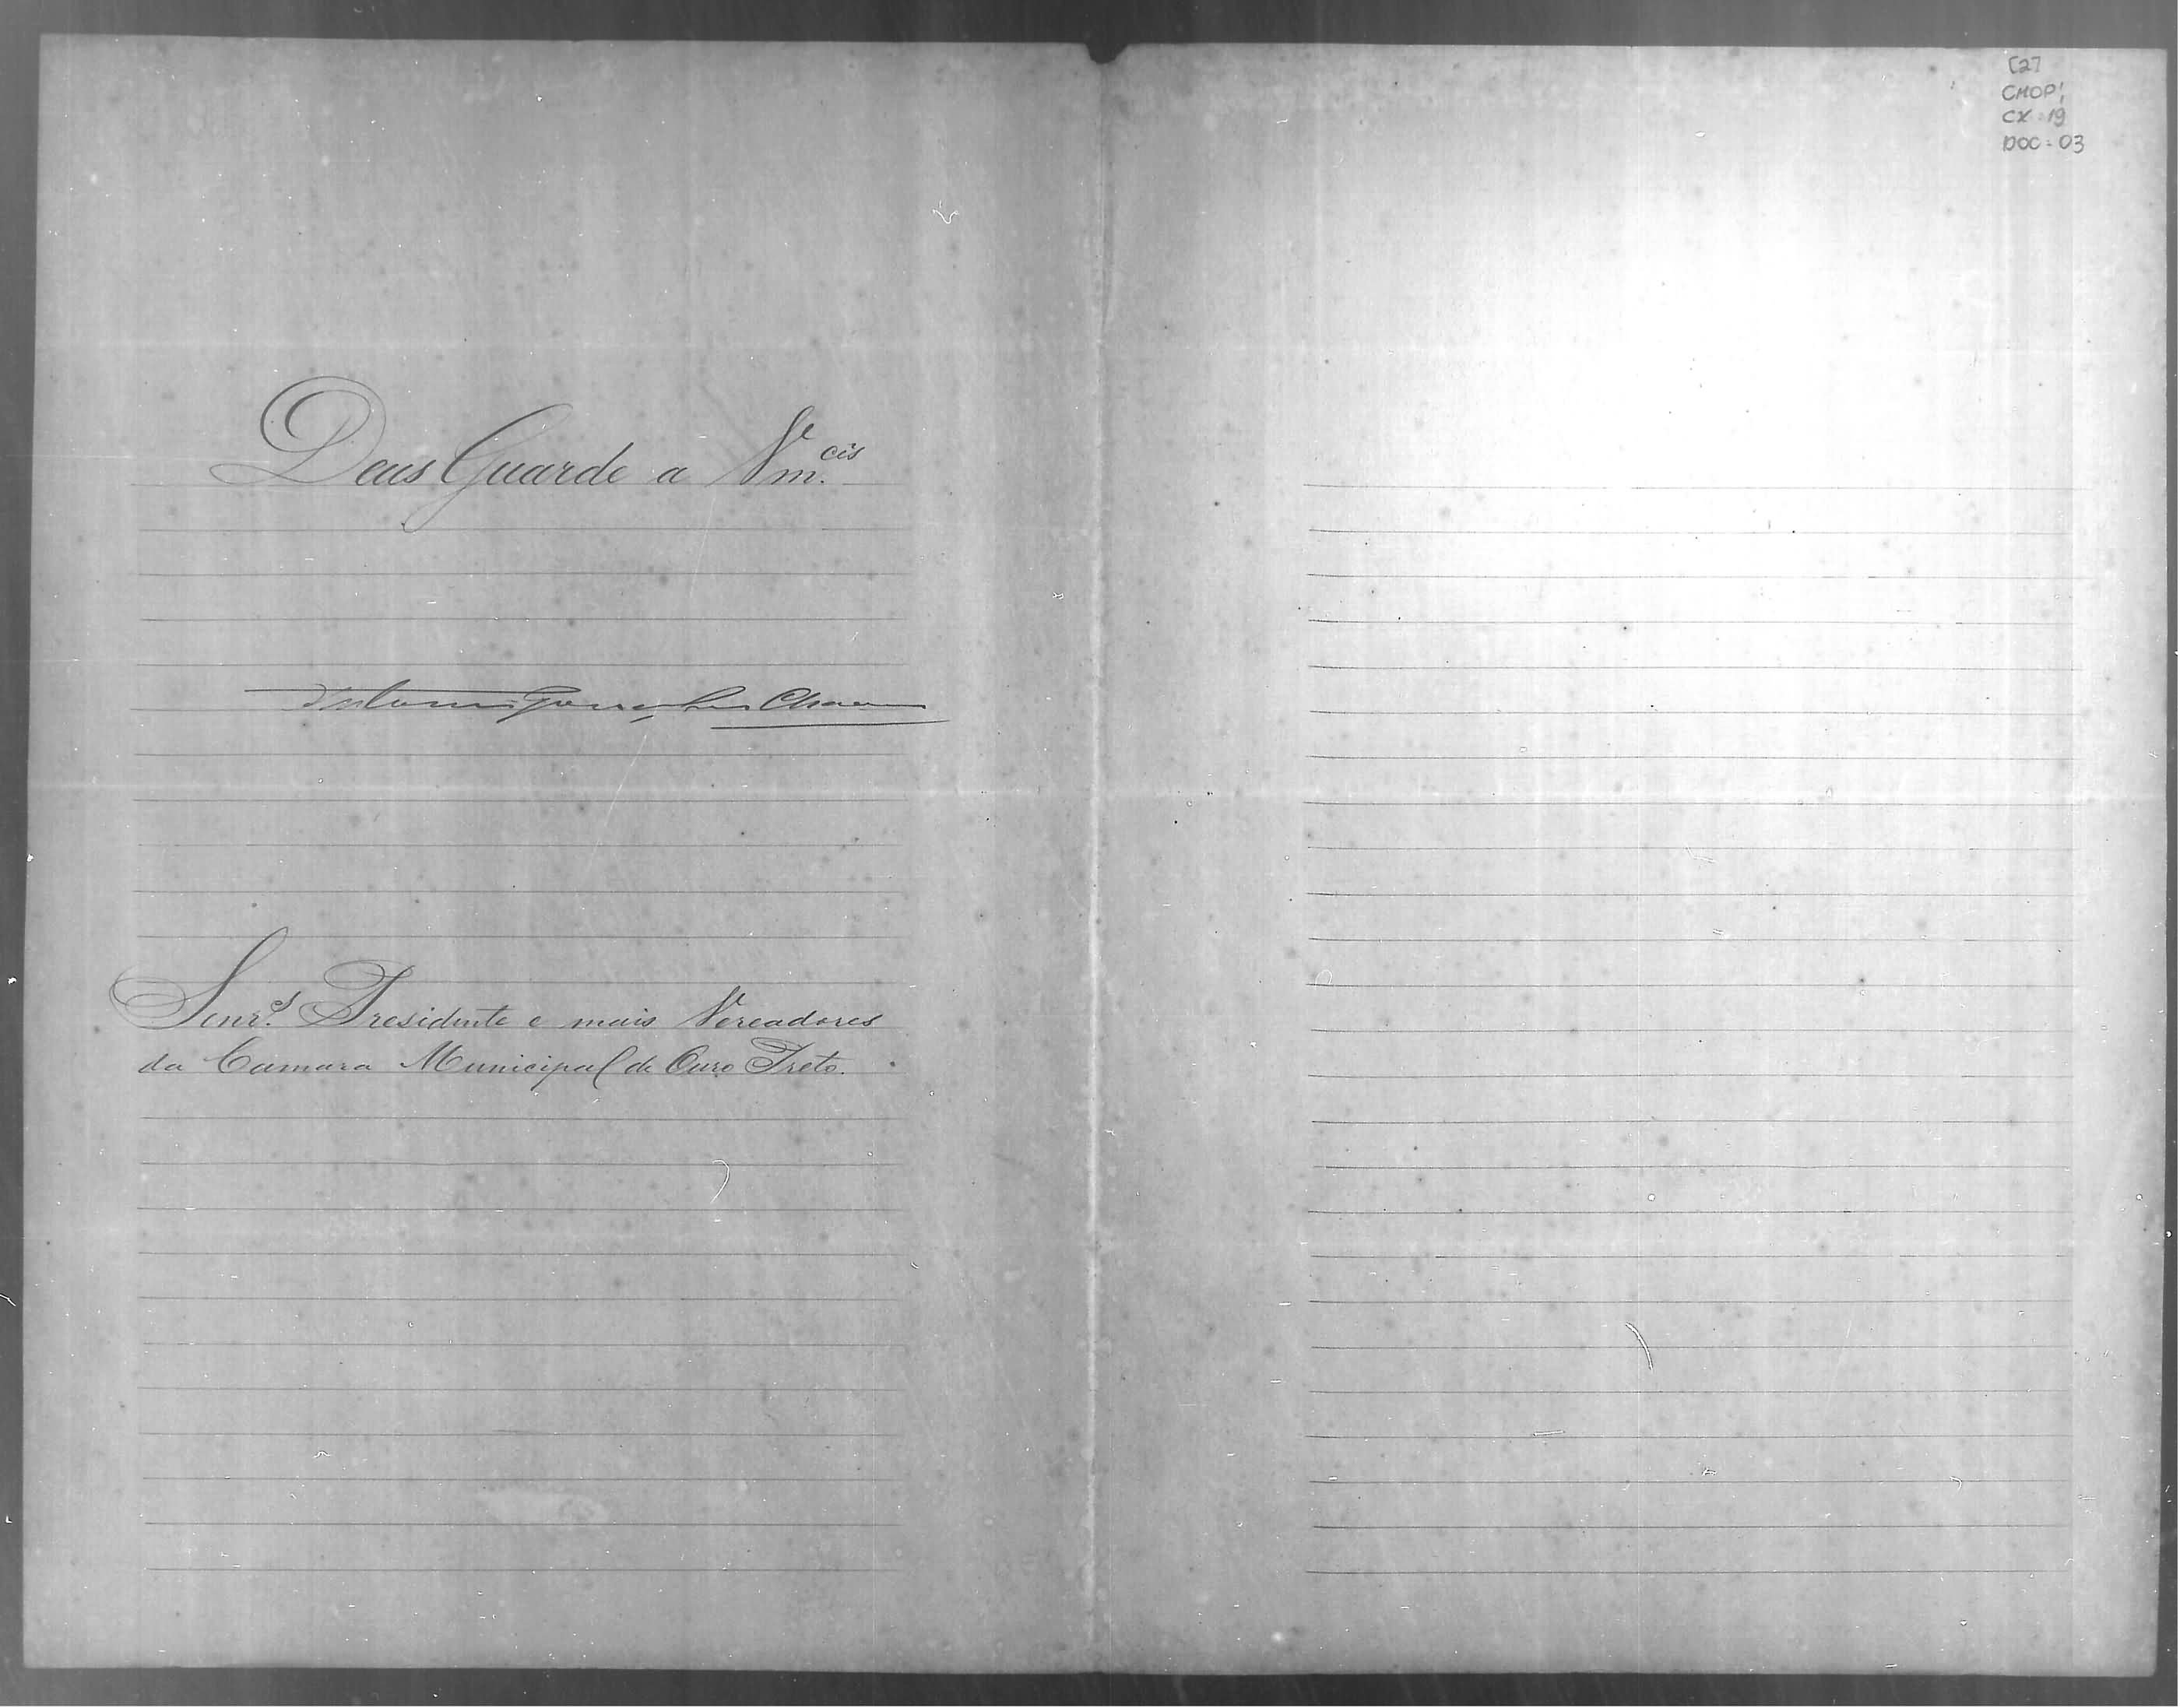 Deus Guarde a Vm.cês
Antonio Gonçalves Chaves
Senr.es Presidente e mais Vereadores
da Camara Municipal de Ouro Preto.
[2]
CMOP;
CX=19
DOC=03